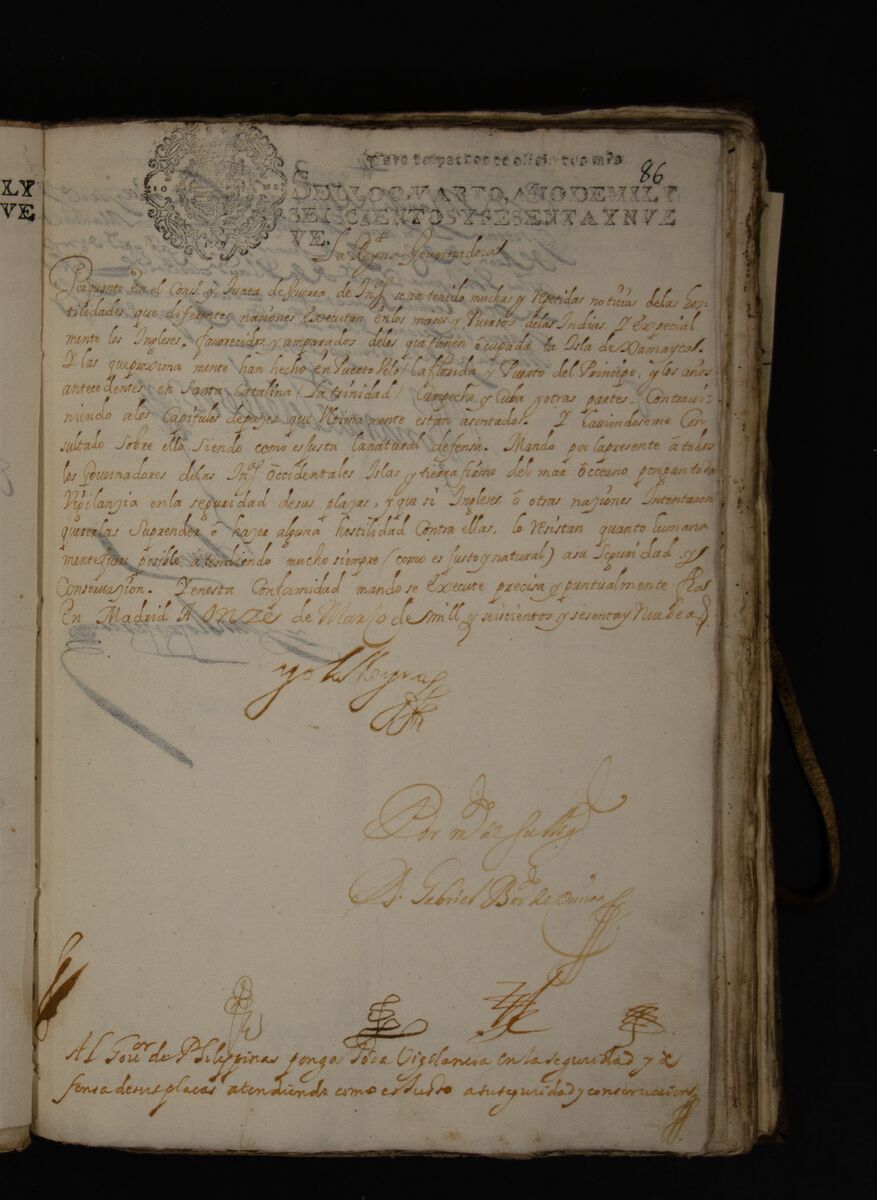 LY
VE
Para despachos de oficio dos mrs
86
SELLO QVARTO, AÑO DE MIL Y
SEISCIENTOS Y SESENTA Y NVE
VE.
La Reyna Gouernadora
Porquanto en el Conso. y Junta de Guerra de Inds se an tenido muchas y repetidas noticias delas hos-
tilidades que diferentes naciones executan en los mares y Puertos delas Indias. Y especial
mente los Ingleses. fauorecidos y amparados delos que tienen ocupada la Isla de Xamayca.
Y las queproxima mente han hecho en Puerto Velo, la florida y Puerto del Principe, y los años
antecedentes en Santa Catalina, la trinidad, Campeche y Cuba y otras partes. Contraui-
niendo alos Capitulos depazes que Vltima mente estan asentados. Y hauiendoseme Con
sultado sobre ello siendo como es justa lanatural defensa. Mando por lapresente a todos
los Gouernadores delas Inds occidentales Islas y tierra firme del mar occeano pongan toda
Vigilanzia enla seguridad desus plazas, y que si Ingleses o otras naziones Intentaren
quererlas Suprender o hazer alguna hostilidad Contra ellas, lo resistan quanto humana
mente fuere posible atendiendo mucho siempre (como es justo y natural) asu seguridad y
Conseruazion. Yenesta Conformidad mando se execute precisa y puntualmente
En Madrid A onze de Março de mill y seiscientos y sesenta y Nueue as
yo la Reyna
Por mdo de su Magd
Dn Gabriel Brdo de quiros
AL Gouor de Philippinas ponga toda Vigilancia en la seguridad y de
fensa desus plaças atendiendo como es Justo a su seguridad y conseruacion